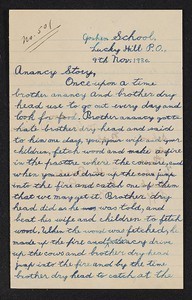 No. 501
School,
Lucky Hill P.O.,
9th Nov. 1930
Anancy Story,
Once upon a time
brother anancy and Brother dry
head use to go out every day and
look for food. Brother anancy got to
hate brother dry head and said
to him one day, your wife and your
children, fetch wood and make fire
in the pasture where the cows are, and
when you see I drive up the cows jump
into the fire and catch one of them
that we may get it. Brother dry
head did as he was told, and
beat his wife and children to fetch
wood. When the wood was fetched he
made up the fire and anancy drive
up the cows and brother dry head
jump into the fire and by the time
brother dry head to catch at the